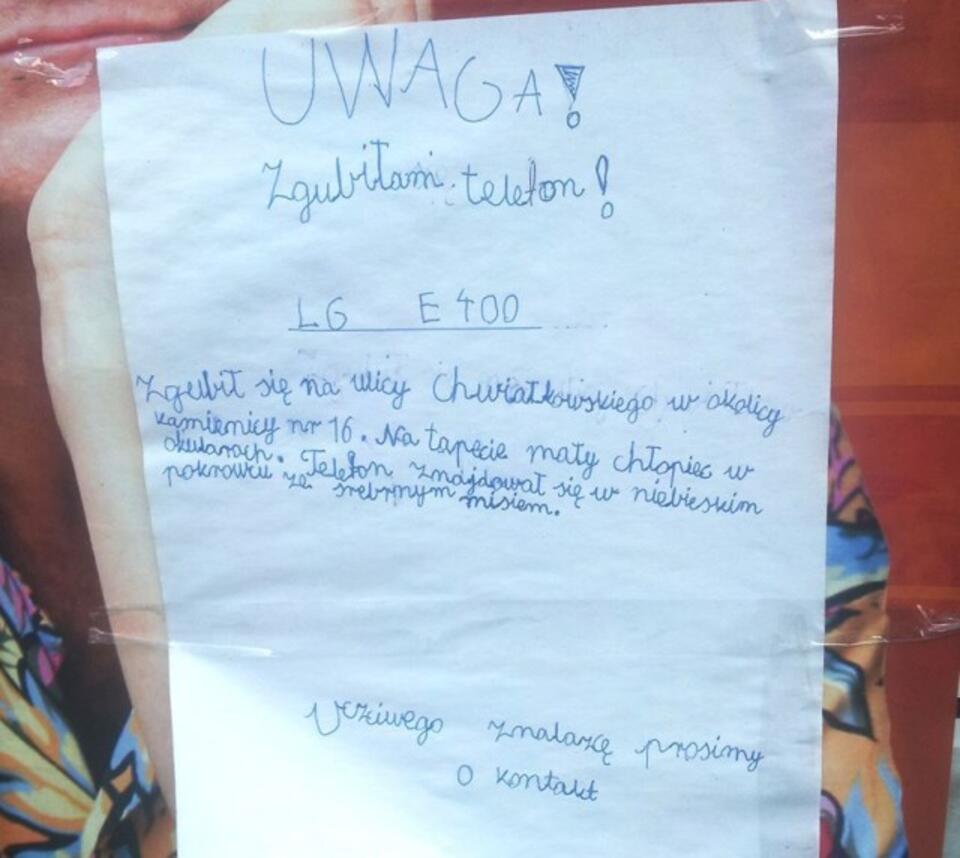 UWAGA!
Zgubiłam telefon!
LG E400
Zgubił się na ulicy Chwiatkowskiego w okolicy
kamienicy nr 16. Na tapecie mały chłopiec w
okularach. Telefon znajdował się w niebieskim
pokrowcu ze srebrnym misiem.
Uczciwego znalazcę prosimy
o kontakt